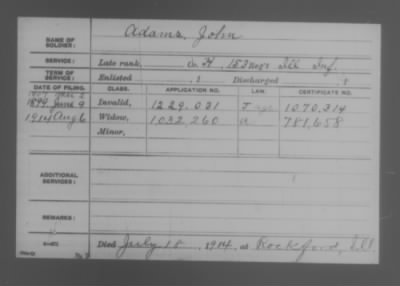 NAME OF SOLDIER: Adams, John
SERVICE: Late rank, , Co. H, 153 Regt Ill. Inf.
TERM OF SERVICE: Enlisted , 1 Discharged , 1
DATE OF FILING. CLASS. APPLICATION NO. LAW. CERTIFICATE NO.
1899 June 9 Invalid, 1229.031 1070,314
1914 Aug 6 Widow, 1032,260 781,658
Minor,
ADDITIONAL SERVICES:
REMARKS:
Died July 18, 1914, at Rockford, Ill.